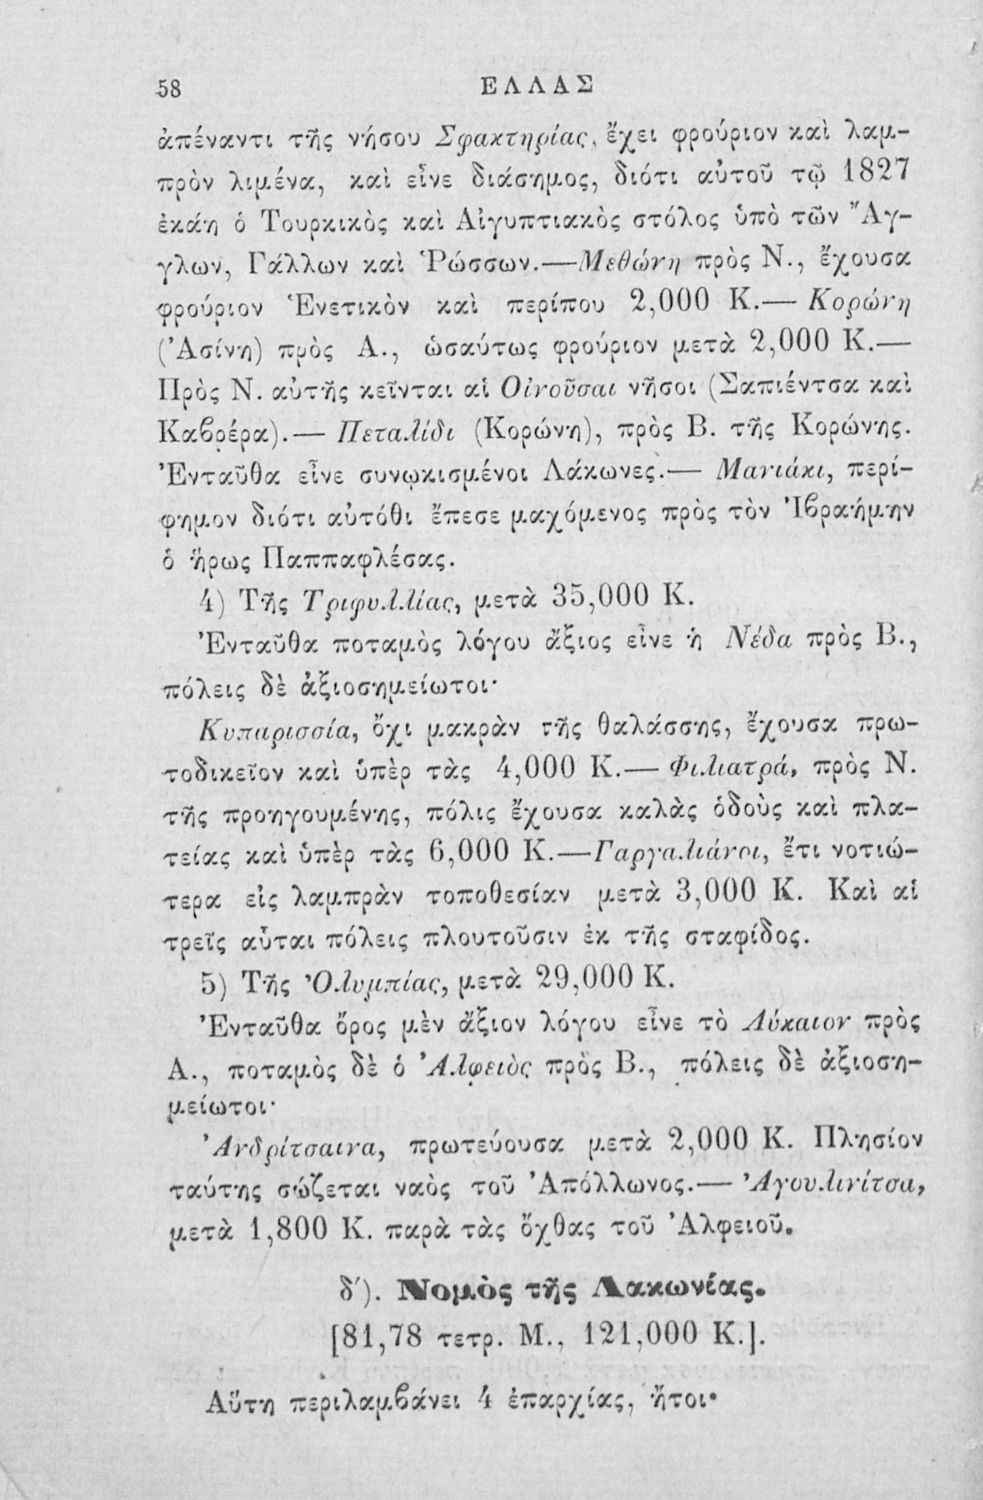 58 ΕΛΛΑΣ
ἀπέναντι τῆς νήσου Σφακτηρίας, ἔχει φρούριον καὶ λαμ-
πρὸν λιμένα, καὶ εἶνε διάσημος, διότι αὐτοῦ τῷ 1827
ἐκάη ὁ Τουρκικὸς καὶ Αἰγυπτιακὸς στόλος ὑπὸ τῶν Ἄγ-
γλων, Γάλλων καὶ Ῥώσσων.—Μεθώνη πρὸς Ν., ἔχουσα
φρούριον Ἑνετικὸν καὶ περίπου 2,000 Κ.— Κορώνη
(Ἀσίνη) πρὸς Α., ὡσαύτως φρούριον μετὰ 2,000 Κ.—
Πρὸς Ν. αὐτῆς κεῖνται αἱ Οἰνοῦσαι νῆσοι (Σαπιέντσα καὶ
Καβρέρα).— Πεταλίδι (Κορώνη), πρὸς Β. τῆς Κορώνης.
Ἐνταῦθα εἶνε συνῳκισμένοι Λάκωνες.— Μανιάκι, περί-
φημον διότι αὐτόθι ἔπεσε μαχόμενος πρὸς τὸν Ἰβραήμην
ὁ ἥρως Παππαφλέσας.
4) Τῆς Τριφυλλίας, μετὰ 35,000 Κ.
Ἐνταῦθα ποταμὸς λόγου ἄξιος εἶνε ἡ Νέδα πρὸς Β.,
πόλεις δὲ ἀξιοσημείωτοι·
Κυπαρισσία, ὄχι μακρὰν τῆς θαλάσσης, ἔχουσα πρω-
τοδικεῖον καὶ ὑπὲρ τὰς 4,000 Κ.— Φιλιατρά, πρὸς Ν.
τῆς προηγουμένης, πόλις ἔχουσα καλὰς ὁδοὺς καὶ πλα-
τείας καὶ ὑπὲρ τὰς 6,000 Κ.—Γαργαλιάνοι, ἔτι νοτιώ-
τερα εἰς λαμπρὰν τοποθεσίαν μετὰ 3,000 Κ. Καὶ αἱ
τρεῖς αὗται πόλεις πλουτοῦσιν ἐκ τῆς σταφίδος.
5) Τῆς Ὀλυμπίας, μετὰ 29,000 Κ.
Ἐνταῦθα ὄρος μὲν ἄξιον λόγου εἶνε τὸ Λύκαιον πρὸς
Α., ποταμὸς δὲ ὁ Ἀλφειὸς πρὸς Β., πόλεις δὲ ἀξιοση-
μείωτοι·
Ἀνδρίτσαινα, πρωτεύουσα μετὰ 2,000 Κ. Πλησίον
ταύτης σώζεται ναὸς τοῦ Ἀπόλλωνος.— Ἀγουλινίτσα,
μετὰ 1,800 Κ. παρὰ τὰς ὄχθας τοῦ Ἀλφειοῦ.
δ΄). Νομὸς τῆς Λακωνίας.
[81,78 τετρ. Μ., 121,000 Κ.].
Αὕτη περιλαμβάνει 4 ἐπαρχίας, ἤτοι·